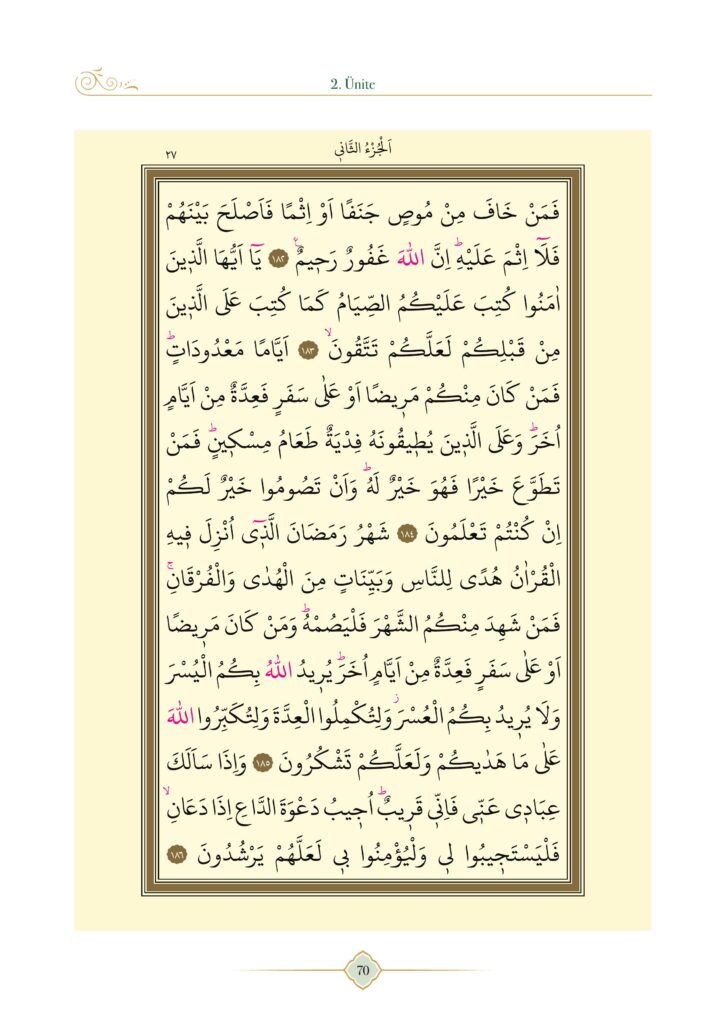 2. Ünite
اَلْجُزْءُ الثَّانٖي
٢٧
فَمَنْ خَافَ مِنْ مُوصٍ جَنَفًا اَوْ اِثْمًا فَاَصْلَحَ بَيْنَهُمْ
فَلَٓا اِثْمَ عَلَيْهِؕ اِنَّ اللّٰهَ غَفُورٌ رَحٖيمٌࣖ ﴿١٨٢﴾ يَٓا اَيُّهَا الَّذٖينَ
اٰمَنُوا كُتِبَ عَلَيْكُمُ الصِّيَامُ كَمَا كُتِبَ عَلَى الَّذٖينَ
مِنْ قَبْلِكُمْ لَعَلَّكُمْ تَتَّقُونَۙ ﴿١٨٣﴾ اَيَّامًا مَعْدُودَاتٍؕ
فَمَنْ كَانَ مِنْكُمْ مَرٖيضًا اَوْ عَلٰى سَفَرٍ فَعِدَّةٌ مِنْ اَيَّامٍ
اُخَرَؕ وَعَلَى الَّذٖينَ يُطٖيقُونَهُ فِدْيَةٌ طَعَامُ مِسْكٖينٍؕ فَمَنْ
تَطَوَّعَ خَيْرًا فَهُوَ خَيْرٌ لَهُؕ وَاَنْ تَصُومُوا خَيْرٌ لَكُمْ
اِنْ كُنْتُمْ تَعْلَمُونَ ﴿١٨٤﴾ شَهْرُ رَمَضَانَ الَّذٖٓى اُنْزِلَ فٖيهِ
الْقُرْاٰنُ هُدًى لِلنَّاسِ وَبَيِّنَاتٍ مِنَ الْهُدٰى وَالْفُرْقَانِۚ
فَمَنْ شَهِدَ مِنْكُمُ الشَّهْرَ فَلْيَصُمْهُؕ وَمَنْ كَانَ مَرٖيضًا
اَوْ عَلٰى سَفَرٍ فَعِدَّةٌ مِنْ اَيَّامٍ اُخَرَؕ يُرٖيدُ اللّٰهُ بِكُمُ الْيُسْرَ
وَلَا يُرٖيدُ بِكُمُ الْعُسْرَؗ وَلِتُكْمِلُوا الْعِدَّةَ وَلِتُكَبِّرُوا اللّٰهَ
عَلٰى مَا هَدٰيكُمْ وَلَعَلَّكُمْ تَشْكُرُونَ ﴿١٨٥﴾ وَاِذَا سَاَلَكَ
عِبَادٖى عَنّٖى فَاِنّٖى قَرٖيبٌؕ اُجٖيبُ دَعْوَةَ الدَّاعِ اِذَا دَعَانِۙ
فَلْيَسْتَجٖيبُوا لٖى وَلْيُؤْمِنُوا بٖى لَعَلَّهُمْ يَرْشُدُونَ ﴿١٨٦﴾
70